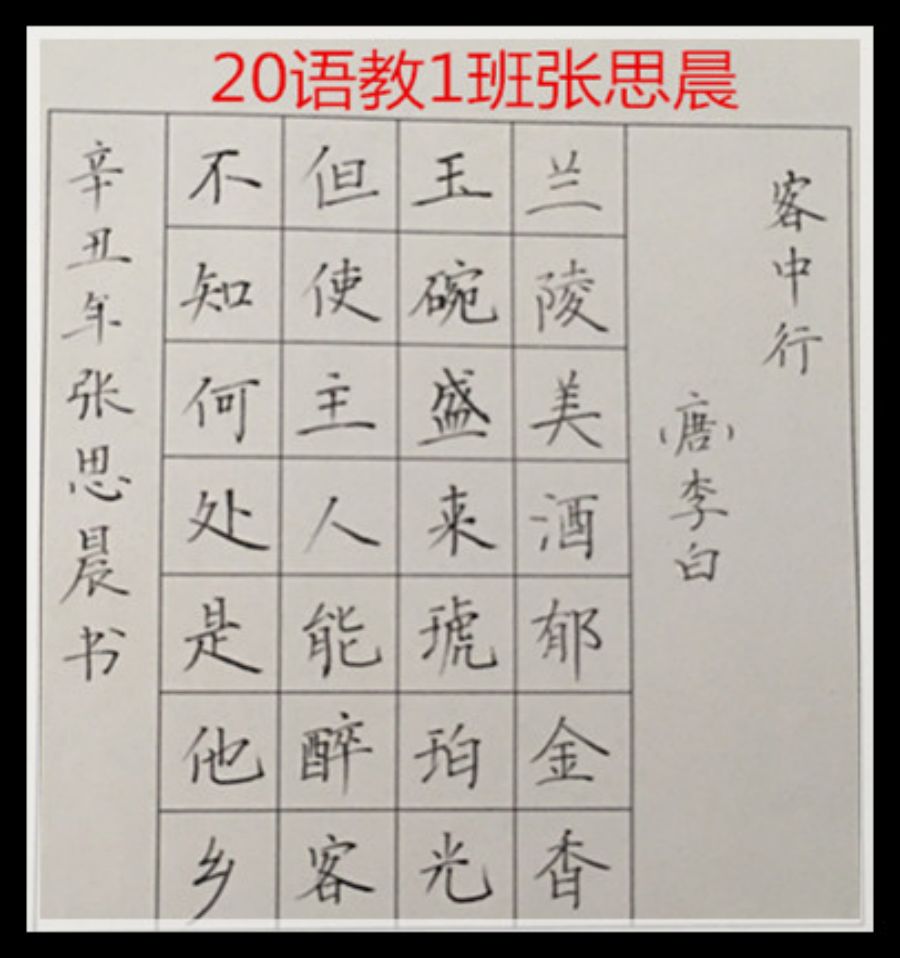 20语教1班张思晨
客中行
（唐）李白
兰陵美酒郁金香
玉碗盛来琥珀光
但使主人能醉客
不知何处是他乡
辛丑年张思晨书